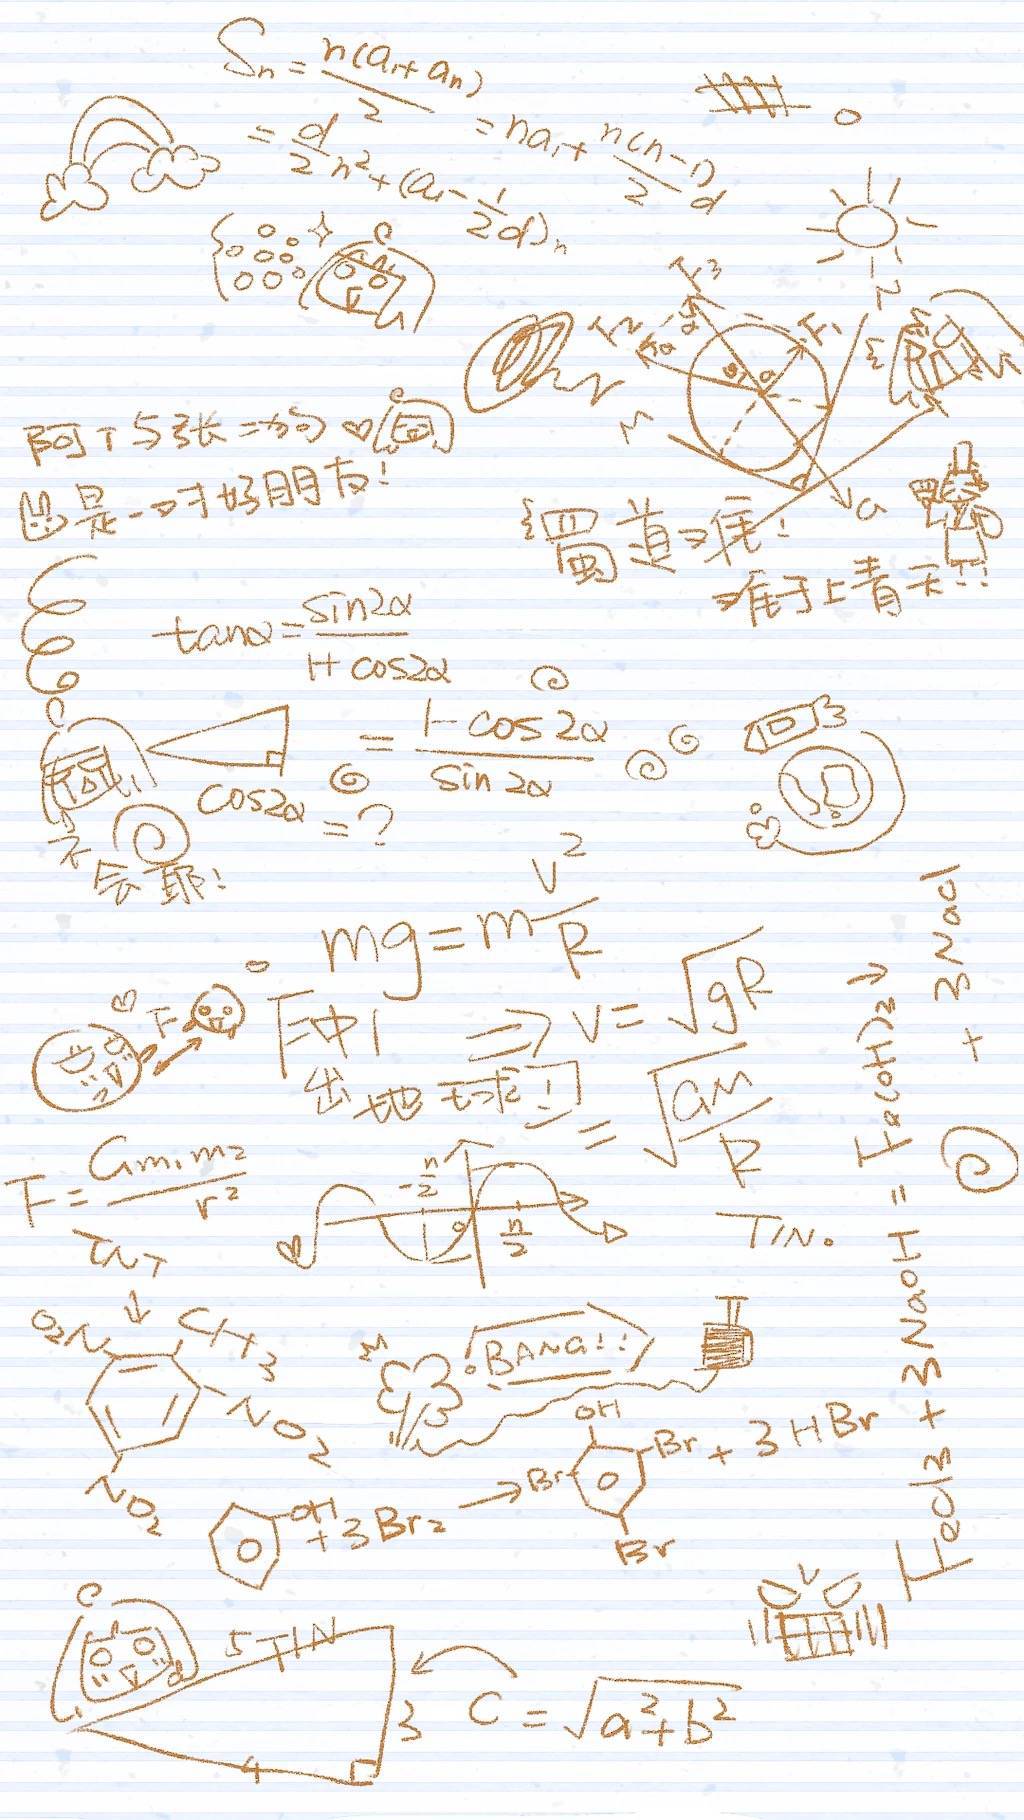 Sn = n(a₁+an)/2
= na₁ + n(n-1)/2 d
= d/2 n² + (a₁ - 1/2 d)n
F3
F2
F1
N
M
G
阿T与张二狗
是一对好朋友!
蜀道难!
难于上青天!!
tanα = sin2α/1+cos2α
= 1-cos2α/sin2α
cos2α = ?
不会耶!
mg = m v²/R
F
冲
出地球!
⇒ v = √gR
= √GM/R
F = Gm₁m₂/r²
-π/2
0
π/2
TIN.
TNT
↓
O₂N
CH₃
NO₂
NO₂
BANG!!
OH + 3Br₂ →
OH
Br
Br
Br
+ 3HBr
FeCl3 + 3NaOH = Fe(OH)2↓
+ 3NaCl
5 TIN
3
4
C = √a²+b²